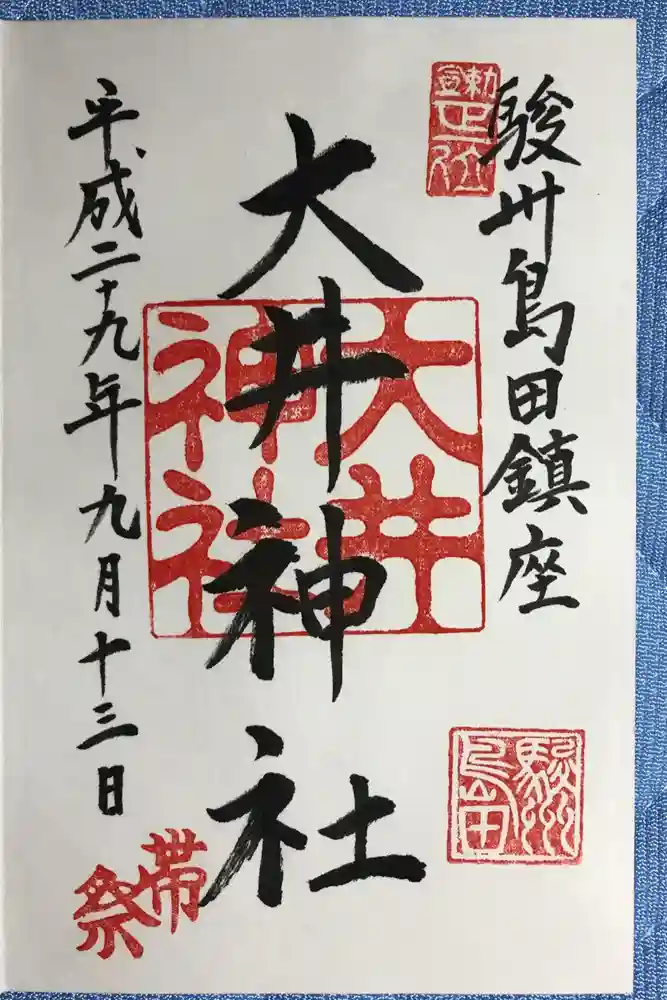 駿州島田鎮座
勅宣
正一位
大井神社
大井
神社
駿州
島田
平成二十九年九月十三日
帯
祭